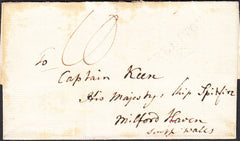 To
Captain Keen
His Majesty's Ship Spitfire
Milford Haven
South Wales